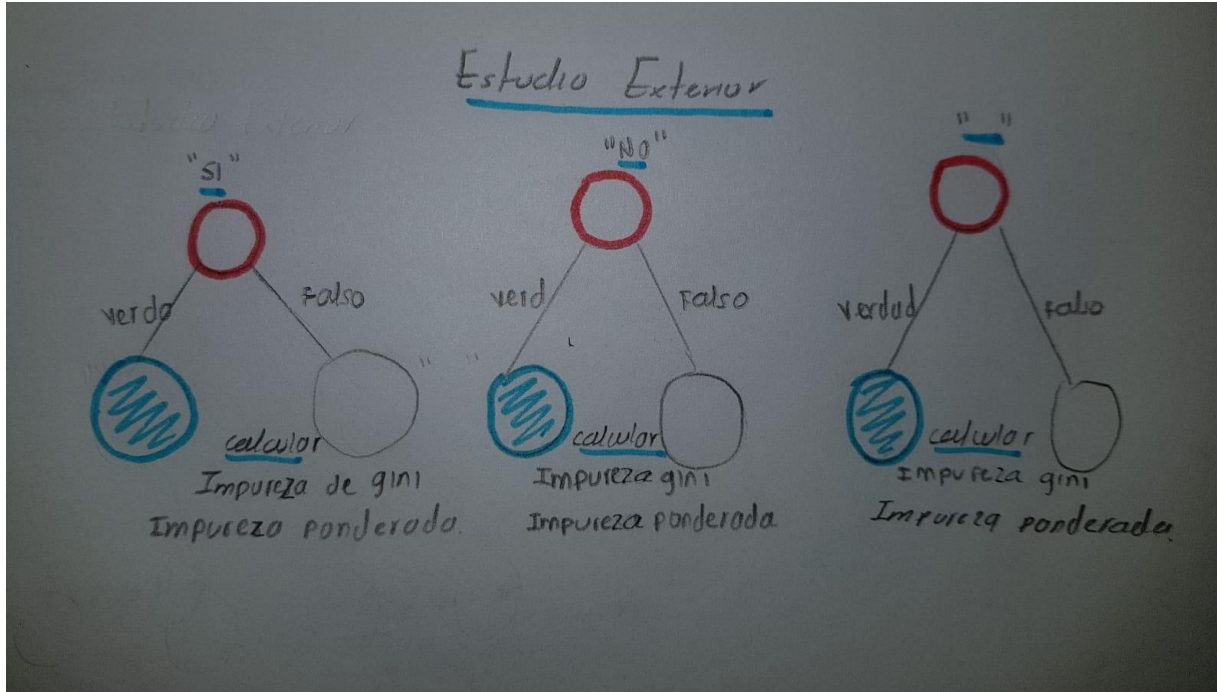 Estudio Exterior
"SI"
verda Falso
calcular
Impureza de gini
Impureza ponderada.
"NO"
verd Falso
calcular
Impureza gini
Impureza ponderada
" "
verdad Falso
calcular
Impureza gini
Impureza ponderada.